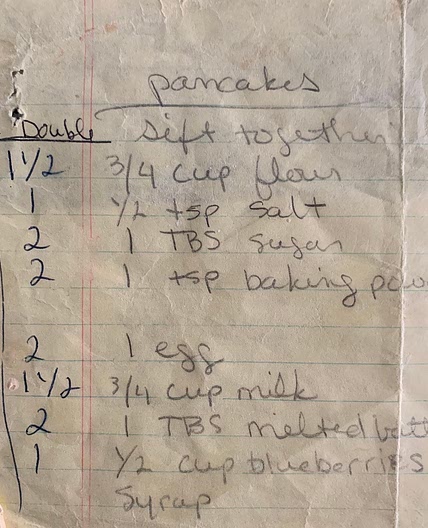 pancakes
Double Sift together
1 1/2 3/4 cup flour
1 1/2 tsp salt
2 1 TBS sugar
2 1 tsp baking pow
2 1 egg
1 1/2 3/4 cup milk
2 1 TBS melted batt
1 1/2 cup blueberries
Syrap